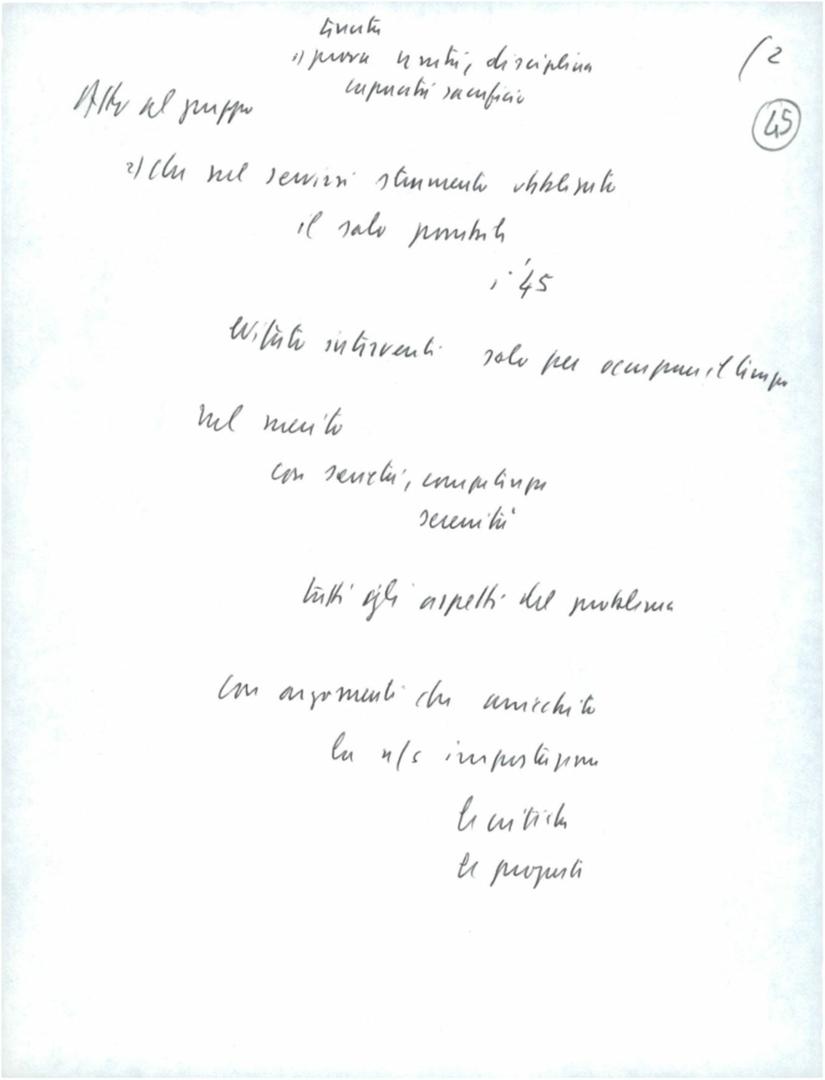 tenuta
1) prova unità, disciplina
capacità sacrificio
/2
45
Atto al gruppo
2) che nel servirsi strumento obbligato
il solo possibile
i '45
evitato interventi solo per occupare il tempo
nel merito
con serietà, competenza
serenità
tutti gli aspetti del problema
con argomenti che arricchito
la n/s impostazione
le critiche
le proposte